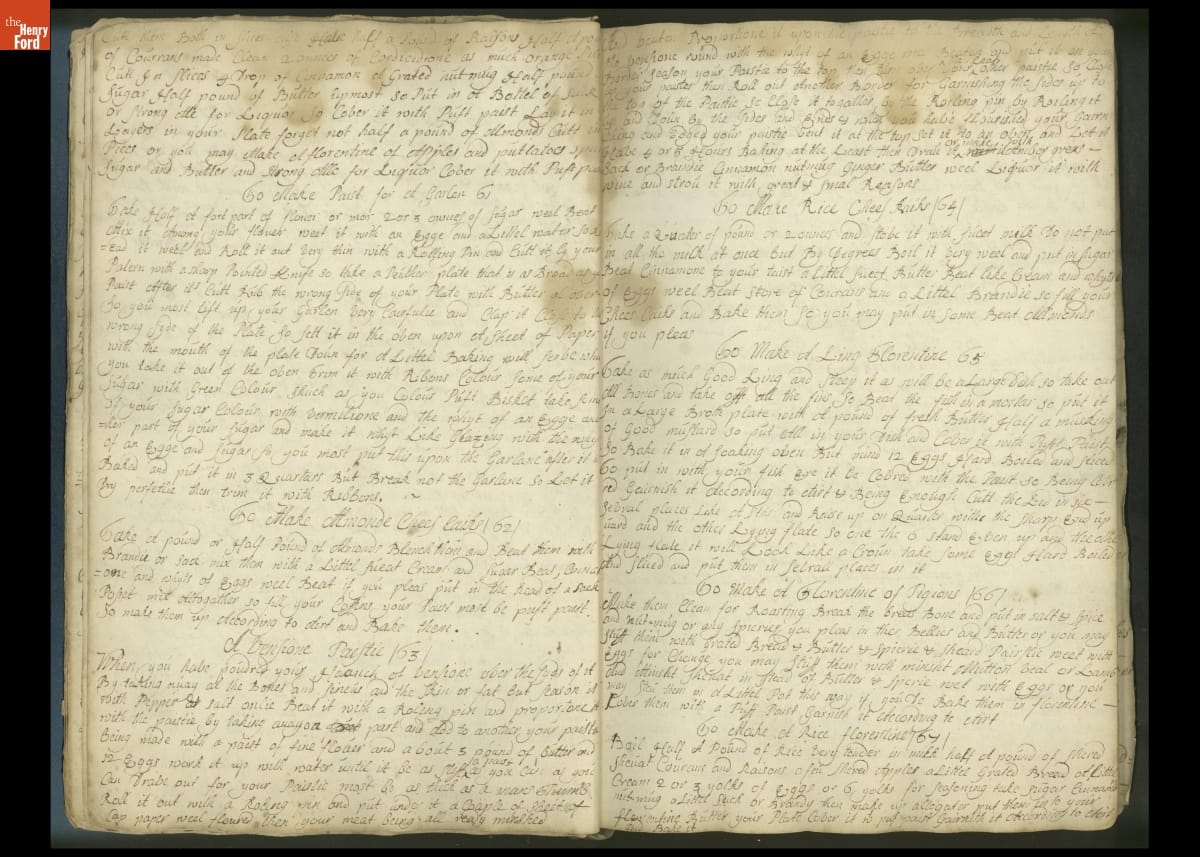 the
Henry
Ford
Cutt them Both in slices half a pound of Raisons Half a pound
of Currans made Clean 2 ounces of Cordecidrone as much orange
Cutt In slices 4 Drop of Cinnamon a Grated nutmug Half pound
Sugar Half pound of Butter upmost so Put in a Bottel of Sack
or Strong Alle for Liquor so Cober it with Puft paist Lay it in
Leayers in your Plate forget not half a pound of Almonds Cutt in
Pices or you may Make a florentine of Apples and puttatoes
Sugar and Butter and strong Alle for Liquor Cober it with Puft
To Make Paist for a Garlen 61
Take Half a fort part of flouer or mor 2 or 3 ounces of Sugar weel Beat
Mix it Among your flouer weet it with an Egge and a Littel water So
=ead it weel and Roll it out very thin with a Rolling Pin and Cutt it by your
Patern with a sharp Pointed Knife so take a Peuther plate that is as Broad as
Paist after it's Cutt Rub the wrong Side of your Plate with Butter all over
So you most lift up your Garlen very Carfulie and Clap it Closs to the
wrong syde of the Plate so sett it in the oben upon a Sheet of Paper
with the mouth of the plate Doun for a Littel Baking will serbe
you take it out of the oben trim it with Ribons Colour some of your
Sugar with Green Colour shuch as you Colour Puft Bisket take some
of your Sugar Colour with vermilione and the whyt of an Egge
=her part of your sugar and make it whyt Like Glazeing with the whyt
of an Egge and sugar so you most put this upon the Garlane after it is
Baked and put it in 3 Quarters But Break not the Garlane so Let it
Dry perfetlie then trim it with Robbons.
To Make Almonde Chees Caiks /62/
Take a pound or Half Pound of Almonds Blench them and Beat them with
Brandie or sack mix them with a Littel sueat Cream and sugar Beat Cinna
=one and whyts of Eggs weel Beat if you pleas put in the head of a sack
Poset mix altogather so fill your Coffens your Paist most be puft paist
So make them up according to Airt and Bake them.
A Vensione Paistie /63/
When you habe poudred your Haanch of bensione ober the syds of it
By taking away all the Bones and sineus and the skin or fat But season it
with Pepper & salt onlie Beat it with a Roleing pin and proportione it
with the paistie by taking away on part and add to another your paist
Being made with a paist of fine flouer and about 3 pound of Butter and
12 Eggs work it up with water untill it be as stiff a paist as you Can as you
Can Drabe out for your Paistie most be as thick as a mans Thumb
Roll it out with a Roleing pin and put under it a Couple of sheets of
Cap paper weel floured then your meat being all ready minshed
And beaten Proportione it upon the paist to the Breadth and Length
the bensione round with the whyt of an Egge and put it on your
Border season your Paistie to the top then lay ober your other paistie so Close
up your paistes then Roll out another Border for Garnishing the sides up to
the top of the Paistie so Close it togather by the Roleing pin by Roleing it
up and Doun by the Sides and Ends & when you habe flourished your Gairn
=ishing and Edged your paistie bent it at the top set it in an oben and Let it
habe 4 or 5 Hours Baking at the Least then drau it
Sack or Brandie Cinnamon nutmug Ginger Butter weel Liquor it with
wine and strou it with great & smal Reasons
To Make Rice Chees Kaiks /64/
Take a Quarter of pound or 2 ounces and stobe it with sueet milk Do not put
in all the milk at once But By Degrees Boil it very weel and put in sugar
Beat Cinnamone to your taist a Littel sueet Butter Beat like Cream and whyts
of Eggs weel Beat store of Courans and a Littel Brandie so fill your
Chees Caiks and Bake them so you may put in some Beat Allmonds
if you pleas
To Make A Ling Florentine 65
Take as much Good Ling and steep it as will be a Large Dish so take out
All Bones and take off all the fins So Beat the fish in a mortar so put it
In a Large Broth plate with a pound of fresh Butter Half a mutchkin
of Good mustard so put All in your Dish and Cober it with Puft Paist
So Bake it in a soaking oben But mind 12 Eggs Hard Boiled and sliced
to put in with your fish Ere it be Cobred with the Paist so Being Cob
red Gairnish it According to Airt & Being Enough Cutt the Lid in six
sebral places Like a Star and Raise up on Quarter withe the sharp End up
ward and the other Lying flate so one the 6 stand Eben up and the other
Lying flate it will Look Like a Croun take some Eggs Hard Boiled
And sliced and put them in sebrall places in it
To Make A Florentine of Pigions /66/
Make them Clean for Roasting Break the breast Bone and put in salt & spice
and nut-mug or any spiceries you pleas in ther Bellies and Butter or you may
stuff them with grated Bread & Butter & spicrie & sheard Pairslie weet with
Eggs for Change you may stuff them with minsht Mutton beal or Lamb
and minsht sheuat in stead of Butter & spicrie weet with Eggs or you
may steu them in a Littel Pot this way if you Do Bake them in florentine
Cober them with a Puff Paist Garnish it According to Airt
To Make A Rice florentine /67/
Boil Half A Pound of Rice very tender in milk half a pound of shered
Sheuat Courans and Raisons a feu shered apples a Littel Grated Bread a Littel
Cream 2 or 3 yolks of Eggs or 6 yolks for seasoning take sugar Cinnamon
nut-mug a Littel sack or Brandy then make up altogater put them into your
florentine Butter your Plate Cober it with puf paist Gairnish it According to Airt
and Bake it